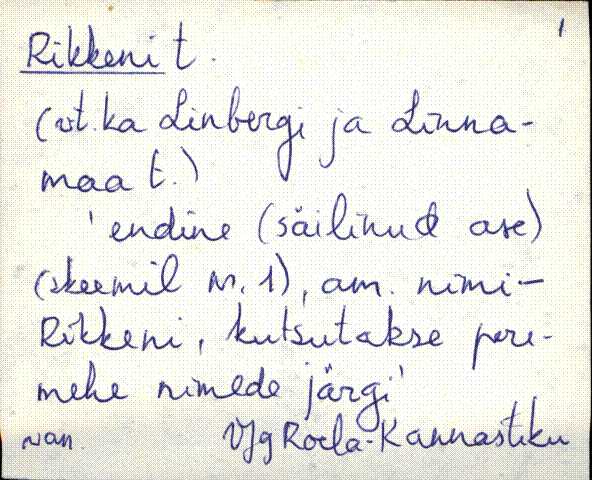 1
Rikkeni t.
(vt. ka Linbergi ja Linna-
maa t.)
'endine (säilinud ase)
(skeemil nr. 1), am. nimi-
Rikkeni, kutsutakse pere-
mehe nimede järgi'
van. VJg Roela-Kannastiku